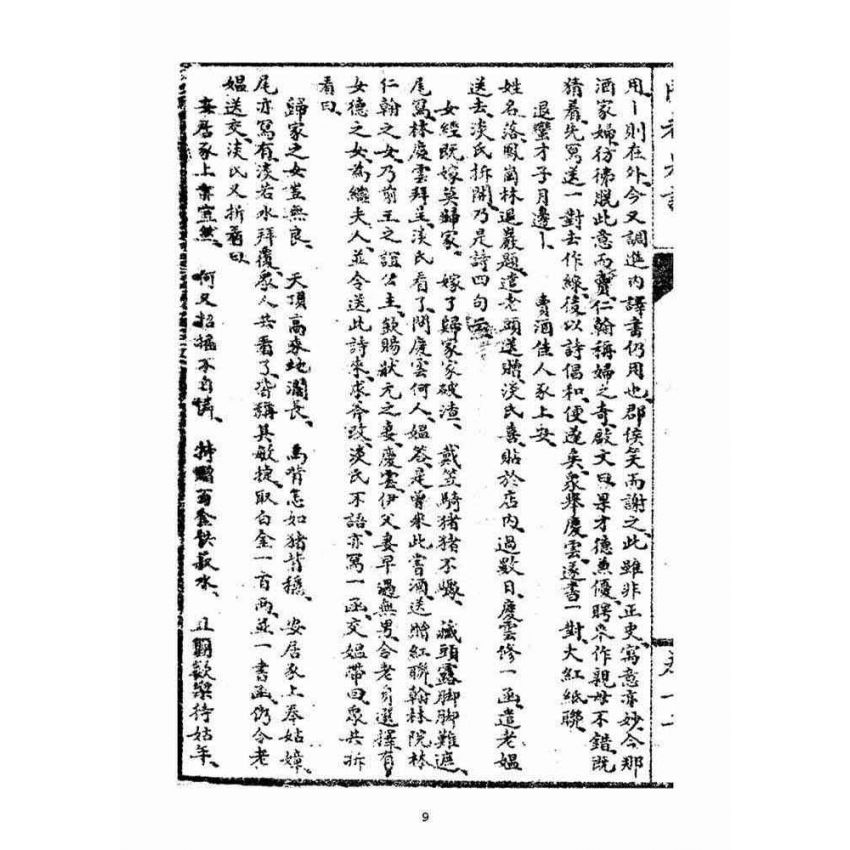 用丨則在外今又調進内譯書仍用也郡侯笑而謝之此雖非正史寫意亦妙今那
酒家婦彷彿眠此意而賣仁翰稱婦之奇啟文曰果才德兼優聘舉作親母不錯既
猜着先寫送一對去作線後以詩倡和便遂矣衆舉慶雲遂書一對大紅紙聯
退蠻才子月邊丨 賣酒佳人豕上安
姓名落鳳崗林退巖題遣老頭送贈淡氏喜貼於店内過數日慶雲修一函遣老媪
送去淡氏拆開乃是詩四句
女經既嫁莫歸家 嫁了歸家家破渣 戴笠騎猪猪不蠍 藏頭露脚脚難遮
尾寫林慶雲拜呈淡氏看了問慶雲何人媪答是曾來此嘗酒送贈紅聯翰林院林
仁翰之女乃前王之誼公主欽賜狀元之妻慶雲伊父妻早過無男令老身選擇有
女德之女為繼夫人並令送此詩來求斧政淡氏不語亦寫一函交媪帶回衆共拆
看曰
歸家之女豈無良 天頂高來地濶長 馬背怎如猪背穩 安居豕上奉姑嫜
尾亦寫有淡若水拜覆衆人共看了皆稱其敏捷取白金一百兩並一書函仍令老
媪送交淡氏又拆看曰
安居豕上亦宜然 何又招搖不自憐 持贈百金供菽水 且圖歡樂待姑年
9